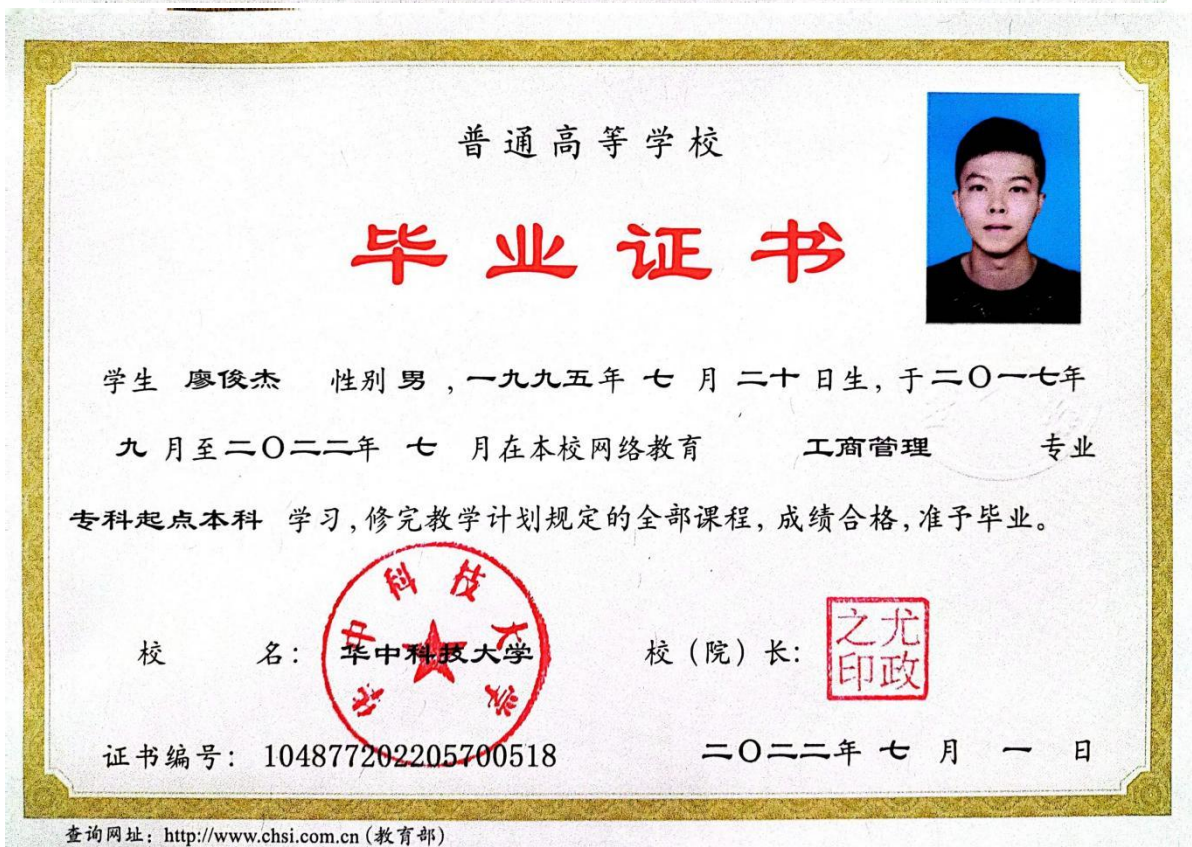 普通高等学校
毕业证书
学生 廖俊杰 性别 男 ,一九九五年 七 月 二十 日生, 于二〇一七年
九 月至二〇二二年 七 月在本校网络教育 工商管理 专业
专科起点本科 学习,修完教学计划规定的全部课程,成绩合格,准予毕业。
华中科技大学
校 名: 华中科技大学 校(院)长: 尤政之印
证书编号: 104877202205700518 二〇二二年 七 月 一 日
查询网址: http://www.chsi.com.cn (教育部)